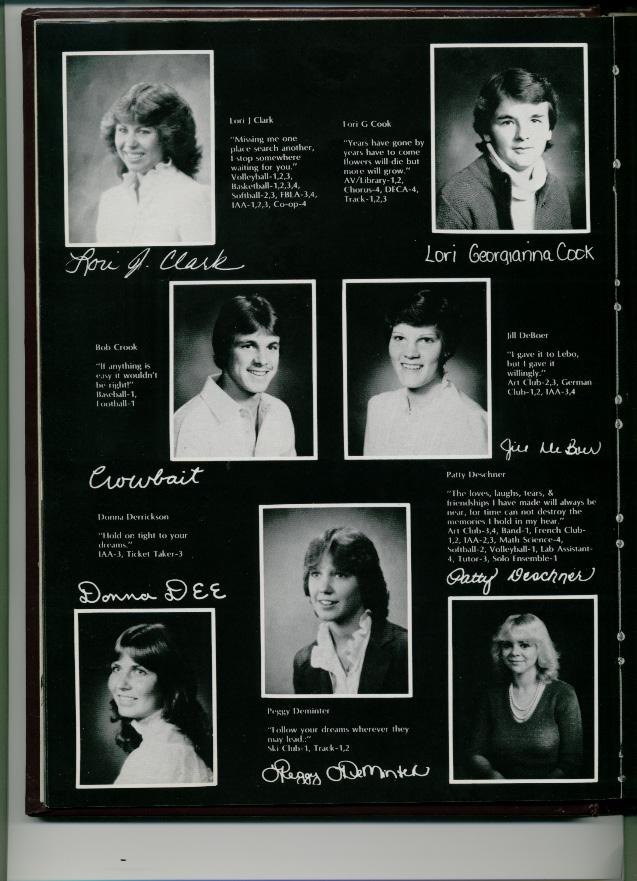 Lori J Clark
"Missing me one
place search another,
I stop somewhere
waiting for you."
Volleyball-1,2,3,
Basketball-1,2,3,4,
Softball-2,3, FBLA-3,4,
IAA-1,2,3, Co-op-4
Lori G Cook
"Years have gone by
years have to come
flowers will die but
more will grow."
AV/Library-1,2,
Chorus-4, DECA-4,
Track-1,2,3
Lori J. Clark
Lori Georgianna Cook
Bob Crook
"If anything is
easy it wouldn't
be right!"
Baseball-1,
Football-1
Jill DeBoer
"I gave it to Lebo,
but I gave it
willingly."
Art Club-2,3, German
Club-1,2, IAA-3,4
Jill DeBoer
Crowbait
Donna Derrickson
"Hold on tight to your
dreams."
IAA-3, Ticket Taker-3
Donna DEE
Patty Deschner
"The loves, laughs, tears, &
friendships I have made will always be
near, for time can not destroy the
memories I hold in my hear."
Art Club-3,4, Band-1, French Club-
1,2, IAA-2,3, Math Science-4,
Softball-2, Volleyball-1, Lab Assistant-
4, Tutor-3, Solo Ensemble-1
Patty Deschner
Peggy Deminter
"Follow your dreams wherever they
may lead.:"
Ski Club-1, Track-1,2
Peggy DeMinter